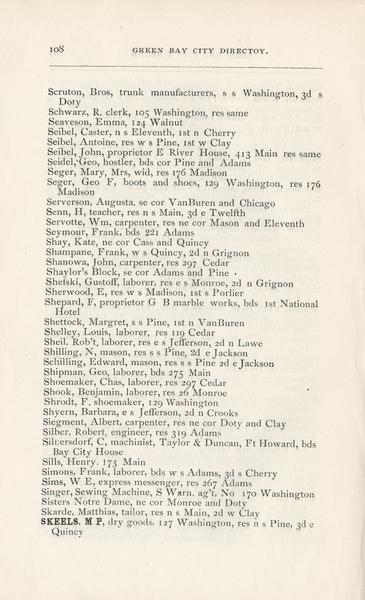 108 GREEN BAY CITY DIRECTOY.
Scruton, Bros, trunk manufacturers, s s Washington, 3d s
Doty
Schwarz, R. clerk, 105 Washington, res same
Seaveson, Emma, 124 Walnut
Seibel, Caster, n s Eleventh, 1st n Cherry
Seibel, Antoine, res w s Pine, 1st w Clay
Seibel, John, proprietor E River House, 413 Main res same
Seidel, Geo, hostler, bds cor Pine and Adams
Seger, Mary, Mrs, wid, res 176 Madison
Seger, Geo F, boots and shoes, 129 Washington, res 176
Madison
Serverson, Augusta, se cor VanBuren and Chicago
Senn, H, teacher, res n s Main, 3d e Twelfth
Servotte, Wm, carpenter, res ne cor Mason and Eleventh
Seymour, Frank, bds 221 Adams
Shay, Kate, ne cor Cass and Quincy
Shampane, Frank, w s Quincy, 2d n Grignon
Shanowa, John, carpenter, res 297 Cedar
Shaylor's Block, se cor Adams and Pine
Shefski, Gustoff, laborer, res e s Monroe, 2d n Grignon
Sherwood, E, res w s Madison, 1st s Porlier
Shepard, F, proprietor G B marble works, bds 1st National
Hotel
Shettock, Margret, s s Pine, 1st n VanBuren
Shelley, Louis, laborer, res 119 Cedar
Sheil, Rob't, laborer, res e s Jefferson, 2d n Lawe
Shilling, N, mason, res s s Pine, 2d e Jackson
Schilling, Edward, mason, res s s Pine 2d e Jackson
Shipman, Geo, laborer, bds 275 Main
Shoemaker, Chas, laborer, res 297 Cedar
Shook, Benjamin, laborer, res 26 Monroe
Shrodt, F, shoemaker, 129 Washington
Shyern, Barbara, e s Jefferson, 2d n Crooks
Siegment, Albert, carpenter, res ne cor Doty and Clay
Silber, Robert, engineer, res 319 Adams
Silbersdorf, C, machinist, Taylor & Duncan, Ft Howard, bds
Bay City House
Sills, Henry. 173 Main
Simons, Frank, laborer, bds w s Adams, 3d s Cherry
Sims, W E, express messenger, res 267 Adams
Singer, Sewing Machine, S Warn. ag't, No 170 Washington
Sisters Notre Dame, ne cor Monroe and Doty
Skarde, Matthias, tailor, res n s Main, 2d w Clay
SKEELS, M P, dry goods, 127 Washington, res n s Pine, 3d e
Quincy